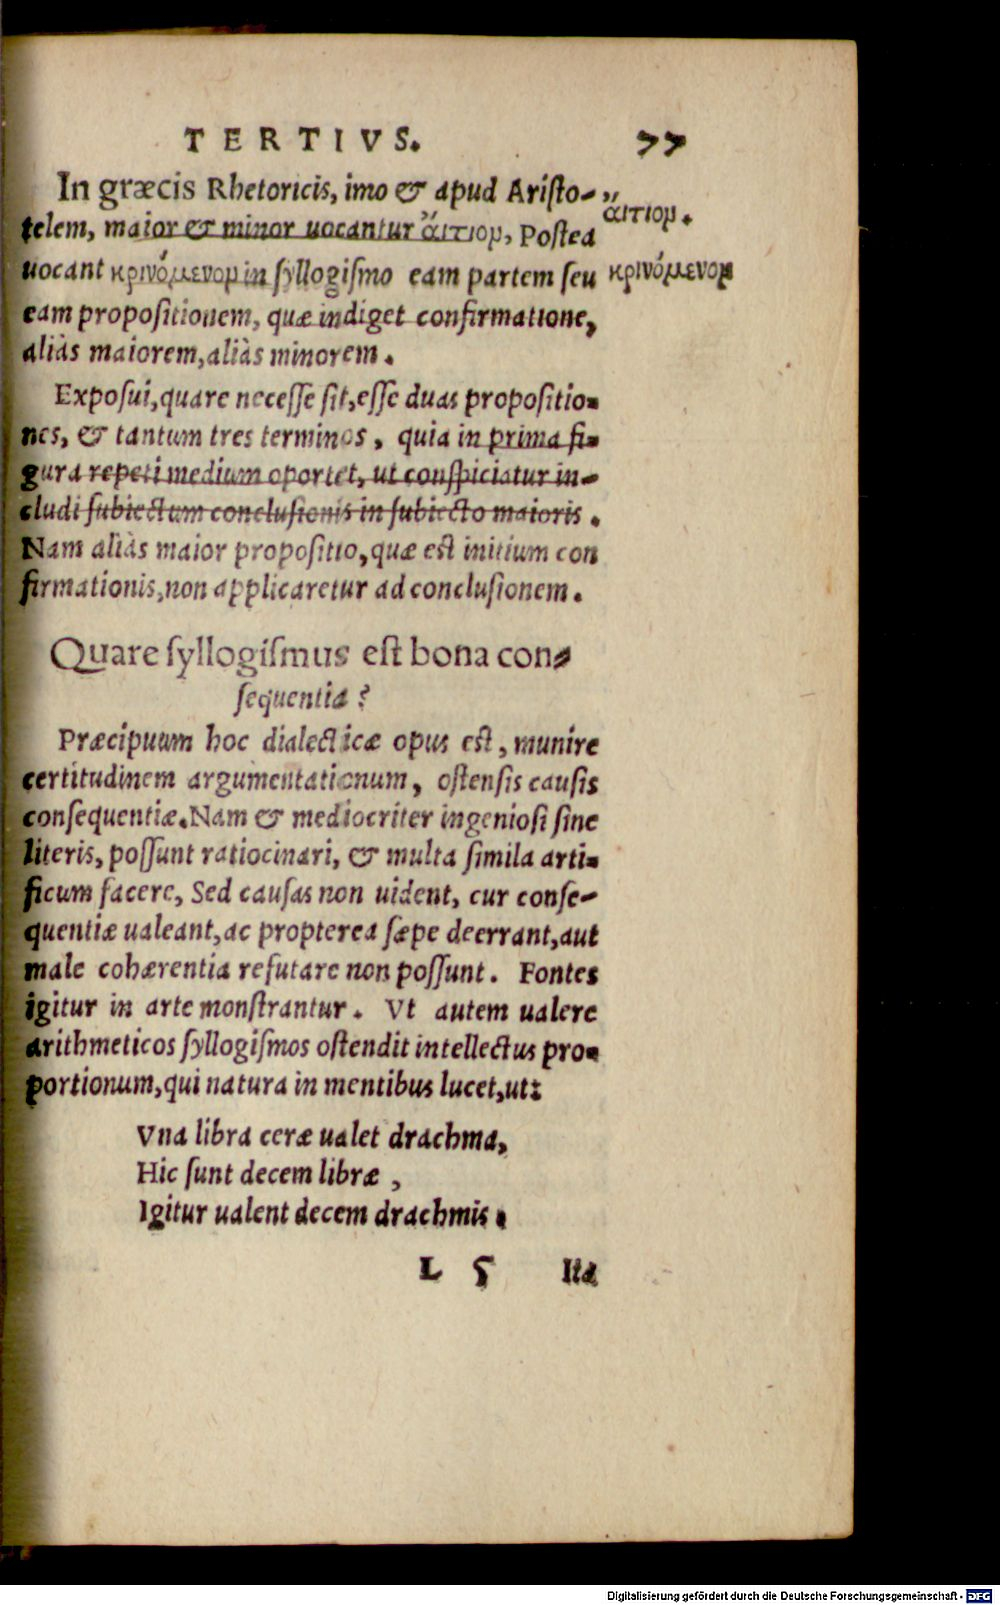 TERTIVS. 77
In græcis Rhetoricis, imo & apud Aristo-
telem, maior & minor uocantur ἄιτιον, Postea
uocant κρινόμενον in syllogismo eam partem seu
eam propositionem, quæ indiget confirmatione,
aliàs maiorem, aliàs minorem.
ἄιτιον.
κρινόμενον
Exposui, quare necesse sit, esse duas propositio-
nes, & tantum tres terminos, quia in prima fi-
gura repeti medium oportet, ut conspiciatur in-
cludi subiectum conclusionis in subiecto maioris.
Nam aliàs maior propositio, quæ est initium con
firmationis, non applicaretur ad conclusionem.
Quare syllogismus est bona con-
sequentia?
Præcipuum hoc dialecticæ opus est, munire
certitudinem argumentationum, ostensis causis
consequentiæ. Nam & mediocriter ingeniosi sine
literis, possunt ratiocinari, & multa simila arti-
ficum facere, Sed causas non uident, cur conse-
quentiæ ualeant, ac propterea sæpe deerrant, aut
male cohærentia refutare non possunt. Fontes
igitur in arte monstrantur. Vt autem ualere
arithmeticos syllogismos ostendit intellectus pro-
portionum, qui natura in mentibus lucet, ut:
Vna libra ceræ ualet drachma,
Hic sunt decem libræ,
Igitur ualent decem drachmis.
L 5 Ita
Digitalisierung gefördert durch die Deutsche Forschungsgemeinschaft - DFG